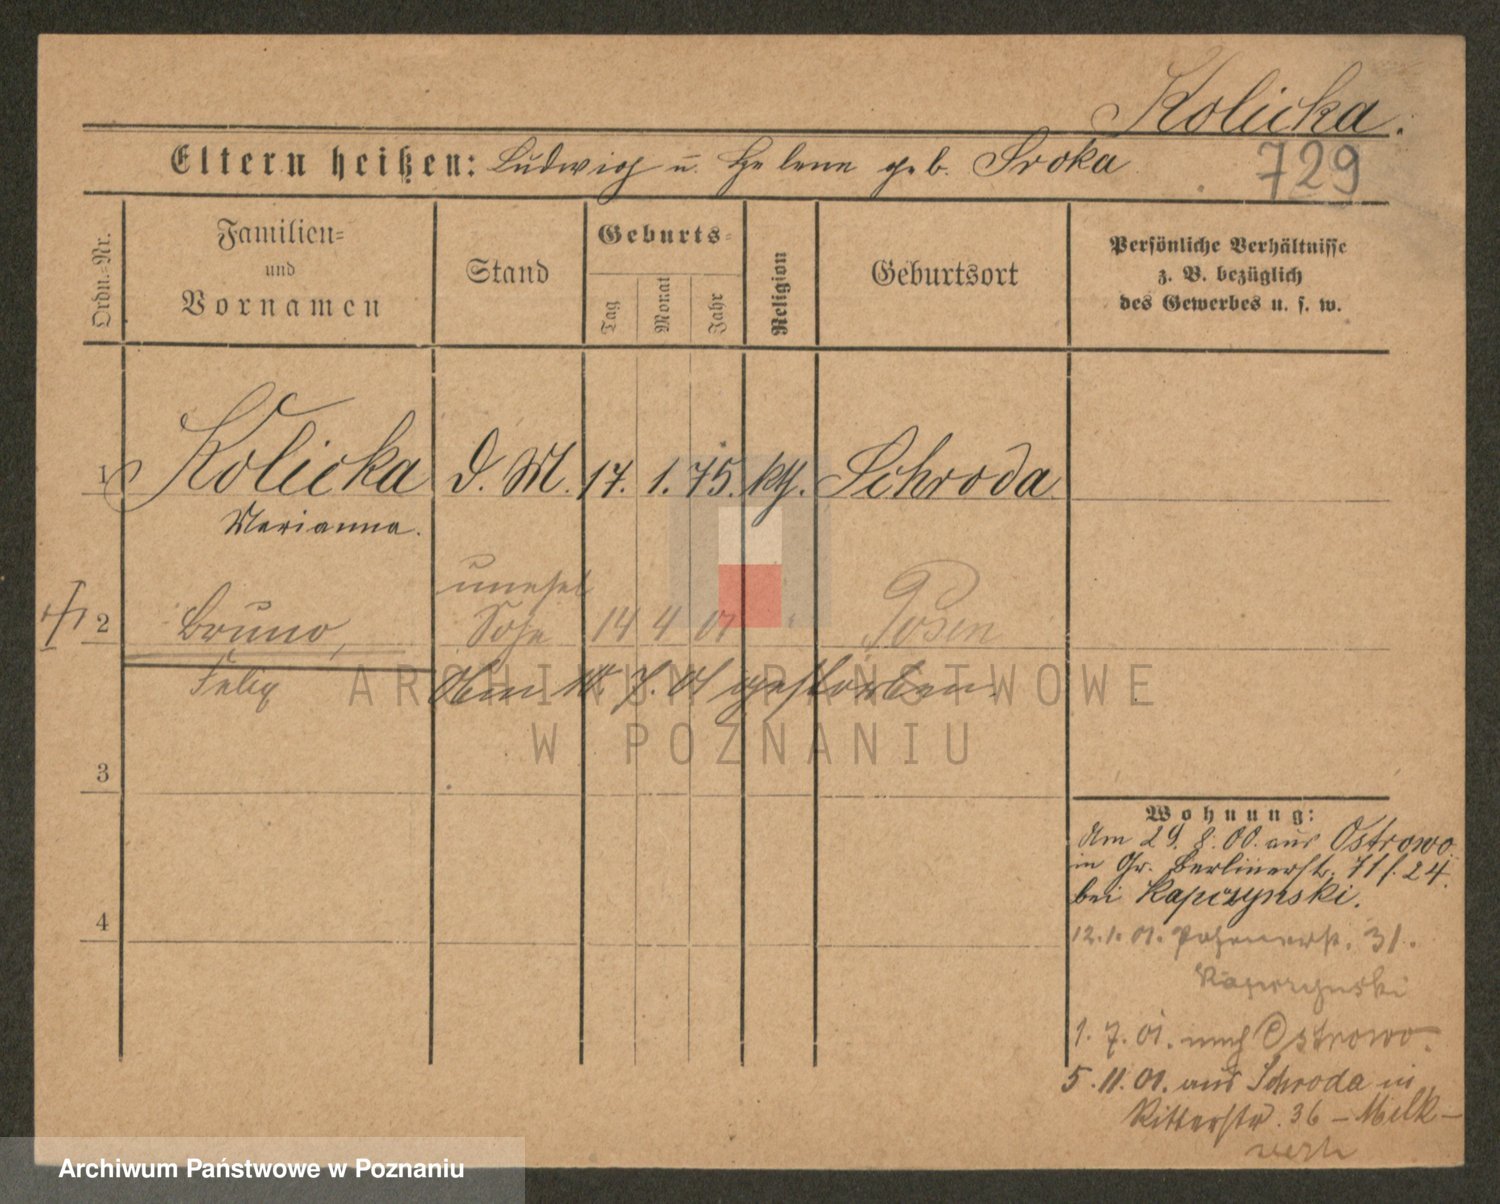 Kolicka.
Eltern heißen: Ludwig u. Helene geb. Sroka
729
Ordn.-Nr.
Familien-
und
Vornamen
Stand
Geburts-
Tag
Monat
Jahr
Religion
Geburtsort
Persönliche Verhältnisse
z. B. bezüglich
des Gewerbes u. s. w.
1 Kolicka d. M. 17. 1. 75. kth. Schroda
Marianna.
unehel
2 Bruno, Sohn 14 4 01 Posen
Felix
Am 7. 01 gestorben.
ARCHIWUM PAŃSTWOWE
W POZNANIU
3
4
Wohnung:
Am 29. 8. 00. aus Ostrowo
in Gr. Berlinerstr. 71 b. 24.
bei Kapczynski.
12. 1. 01. Posenerstr. 31.
Kapczynski
1. 7. 01. nach Ostrowo.
5. 11. 01. aus Schroda in
Ritterstr. 36 –
Archiwum Państwowe w Poznaniu